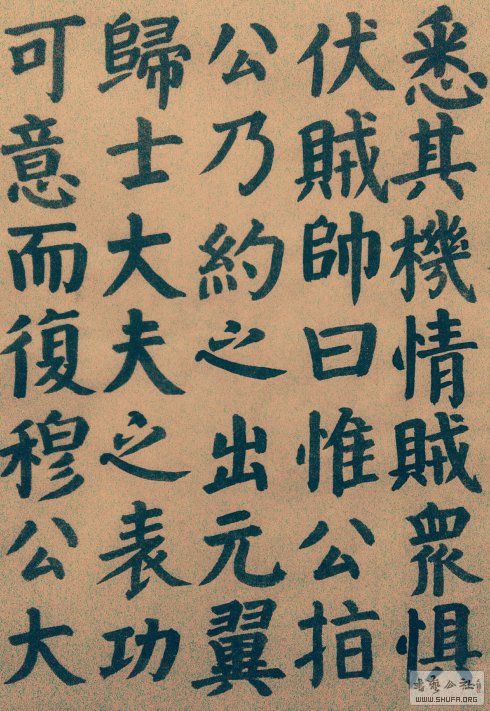 悉其機情賊衆惧
伏賊帥曰惟公指
公乃約之出元翼
歸士大夫之表功
可意而復穆公大
書藝公社
WWW.SHUFA.ORG